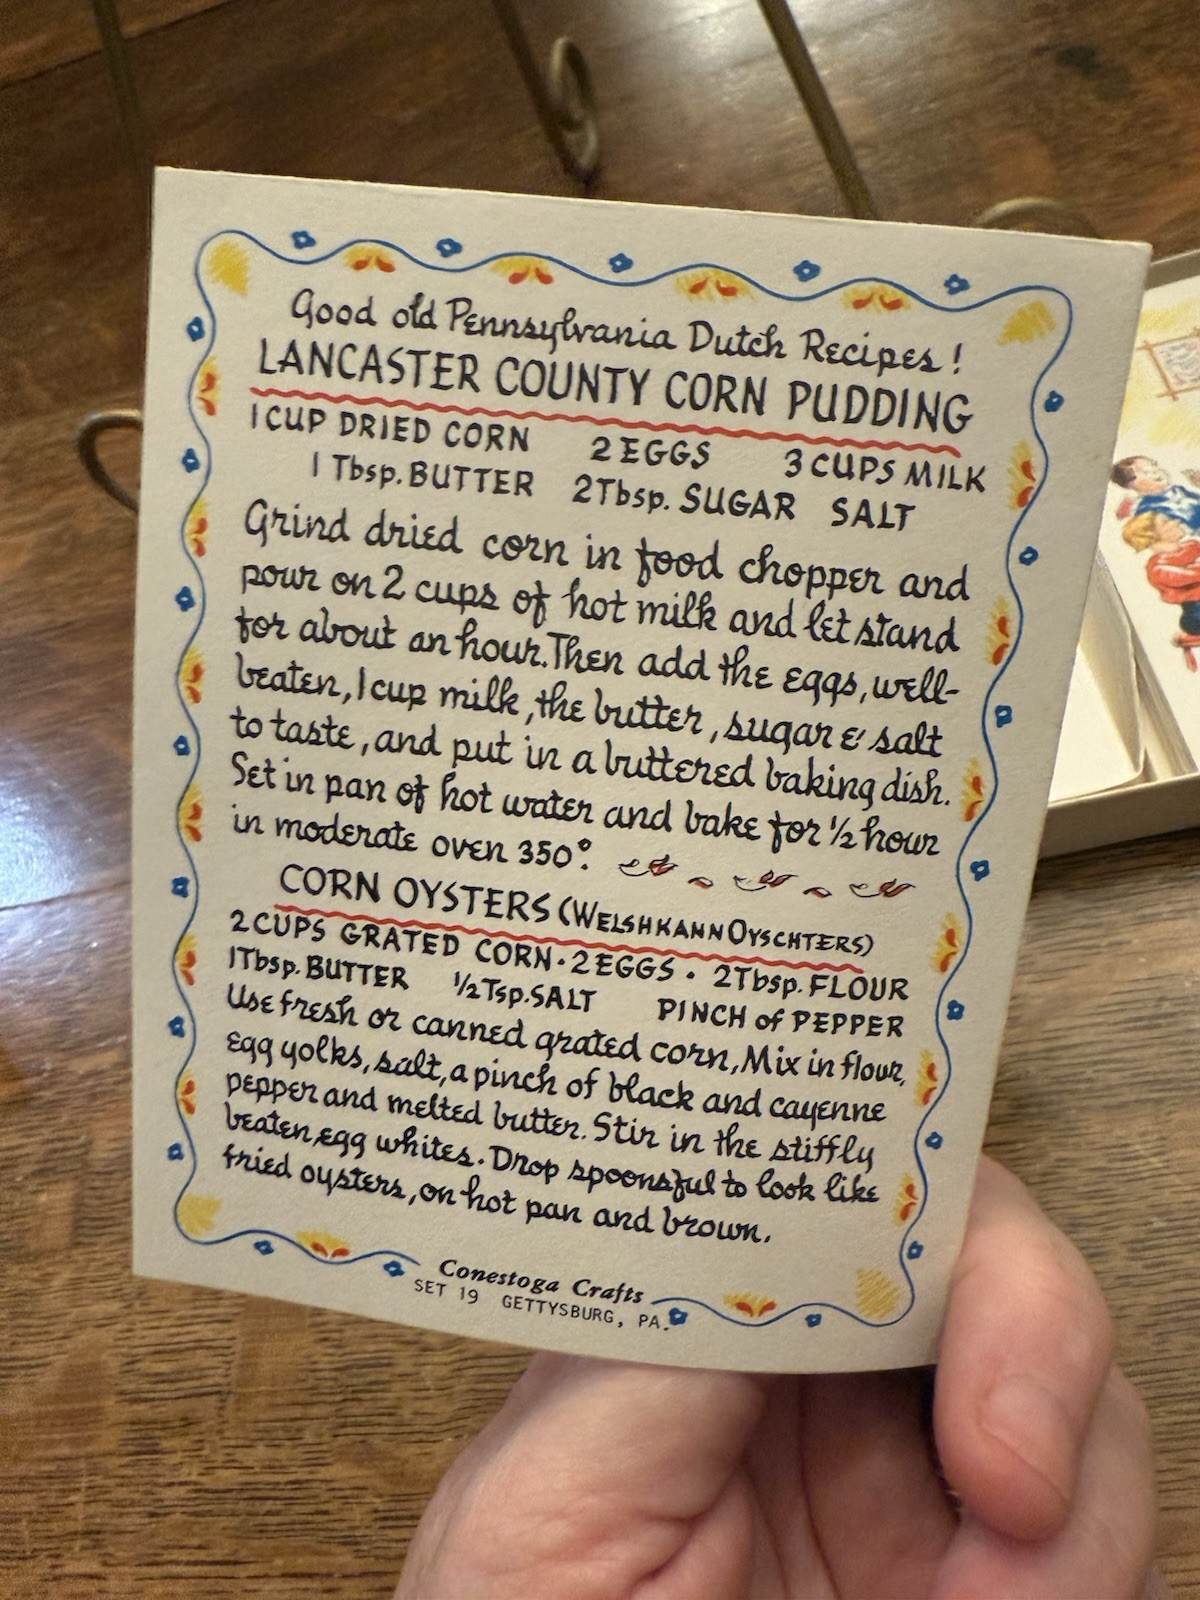 Good old Pennsylvania Dutch Recipes!
LANCASTER COUNTY CORN PUDDING
1 CUP DRIED CORN 2 EGGS 3 CUPS MILK
1 Tbsp. BUTTER 2 Tbsp. SUGAR SALT
Grind dried corn in food chopper and
pour on 2 cups of hot milk and let stand
for about an hour. Then add the eggs, well-
beaten, 1 cup milk, the butter, sugar & salt
to taste, and put in a buttered baking dish.
Set in pan of hot water and bake for ½ hour
in moderate oven 350°.
CORN OYSTERS (WELSHKANN OYSCHTERS)
2 CUPS GRATED CORN · 2 EGGS · 2 Tbsp. FLOUR
1 Tbsp. BUTTER ½ Tsp. SALT PINCH of PEPPER
Use fresh or canned grated corn, Mix in flour,
egg yolks, salt, a pinch of black and cayenne
pepper and melted butter. Stir in the stiffly
beaten egg whites. Drop spoonsful to look like
fried oysters, on hot pan and brown.
Conestoga Crafts
SET 19 GETTYSBURG, PA.